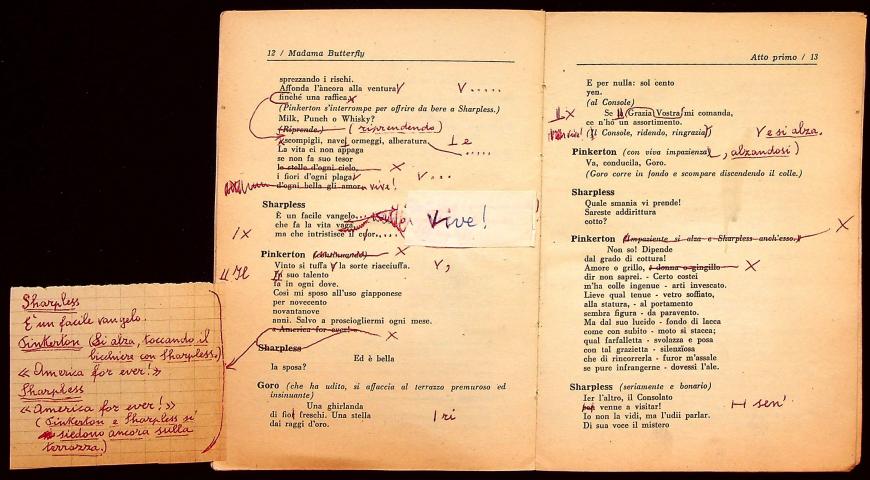 12 / Madama Butterfly
sprezzando i rischi.
Affonda l'àncora alla ventura
finché una raffica
(Pinkerton s'interrompe per offrire da bere a Sharpless.)
Milk, Punch o Whisky?
(Riprende.) (riprendendo)
scompigli, nave, ormeggi, alberatura.
La vita ei non appaga
se non fa suo tesor
le stelle d'ogni cielo,
i fiori d'ogni plaga,
d'ogni bella gli amor. vive!
Sharpless
È un facile vangelo...
che fa la vita vaga
ma che intristisce il cuor....
vive!
Pinkerton (continuando)
Vinto si tuffa, la sorte riacciuffa.
Il suo talento
fa in ogni dove.
Così mi sposo all'uso giapponese
per novecento
novantanove
anni. Salvo a prosciogliermi ogni mese.
« America for ever! »
Sharpless
Ed è bella
la sposa?
Goro (che ha udito, si affaccia al terrazzo premuroso ed
insinuante)
Una ghirlanda
di fiori freschi. Una stella
dai raggi d'oro.
ri
Sharpless
È un facile vangelo.
Pinkerton (Si alza, toccando il
bicchiere con Sharpless.)
« America for ever! »
Sharpless
« America for ever! »
(Pinkerton e Sharpless si
siedono ancora sulla
terrazza.)
Atto primo / 13
E per nulla: sol cento
yen.
(al Console)
Se la Grazia Vostra mi comanda,
ce n'ho un assortimento.
(Il Console, ridendo, ringrazia) e si alza.
Pinkerton (con viva impazienza, alzandosi)
Va, conducila, Goro.
(Goro corre in fondo e scompare discendendo il colle.)
Sharpless
Quale smania vi prende!
Sareste addirittura
cotto?
Pinkerton (impaziente si alza e Sharpless anch'esso.)
Non so! Dipende
dal grado di cottura!
Amore o grillo, - donna o gingillo
dir non saprei. - Certo costei
m'ha colle ingenue - arti invescato.
Lieve qual tenue - vetro soffiato,
alla statura, - al portamento
sembra figura - da paravento.
Ma dal suo lucido - fondo di lacca
come con subito - moto si stacca;
qual farfalletta - svolazza e posa
con tal grazietta - silenzïosa
che di rincorrerla - furor m'assale
se pure infrangerne - dovessi l'ale.
Sharpless (seriamente e bonario)
Ier l'altro, il Consolato
venne a visitar! sen'
Io non la vidi, ma l'udii parlar.
Di sua voce il mistero